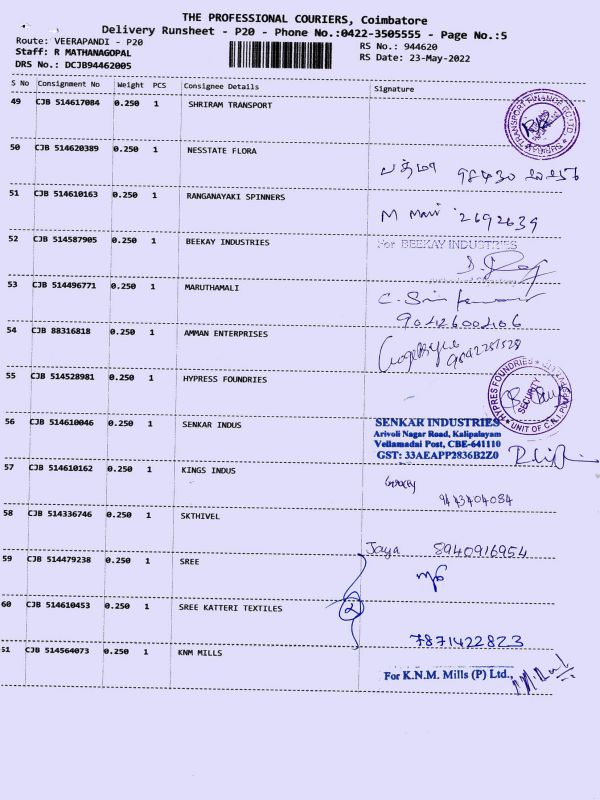 THE PROFESSIONAL COURIERS, Coimbatore
Delivery Runsheet - P20 - Phone No.:0422-3505555 - Page No.:5
Route: VEERAPANDI - P20 RS No.: 944620
Staff: R MATHANAGOPAL RS Date: 23-May-2022
DRS No.: DCJB94462005
S No Consignment No Weight PCS Consignee Details Signature
49 CJB 514617084 0.250 1 SHRIRAM TRANSPORT
50 CJB 514620389 0.250 1 NESSTATE FLORA
பத்மா
51 CJB 514610163 0.250 1 RANGANAYAKI SPINNERS
M Mani 2692639
52 CJB 514587905 0.250 1 BEEKAY INDUSTRIES
For BEEKAY INDUSTRIES
53 CJB 514496771 0.250 1 MARUTHAMALI
54 CJB 88316818 0.250 1 AMMAN ENTERPRISES
55 CJB 514528981 0.250 1 HYPRESS FOUNDRIES
HYPRESS FOUNDRIES
SECURITY
56 CJB 514610046 0.250 1 SENKAR INDUS
SENKAR INDUSTRIES
Arivoli Nagar Road, Kalipalayam
Vellamadai Post, CBE-641110
GST: 33AEAPP2836B2Z0
57 CJB 514610162 0.250 1 KINGS INDUS
9443404084
58 CJB 514336746 0.250 1 SKTHIVEL
Jaya 8940916954
59 CJB 514479238 0.250 1 SREE
60 CJB 514610453 0.250 1 SREE KATTERI TEXTILES
2
7871422823
61 CJB 514564073 0.250 1 KNM MILLS
For K.N.M. Mills (P) Ltd.,